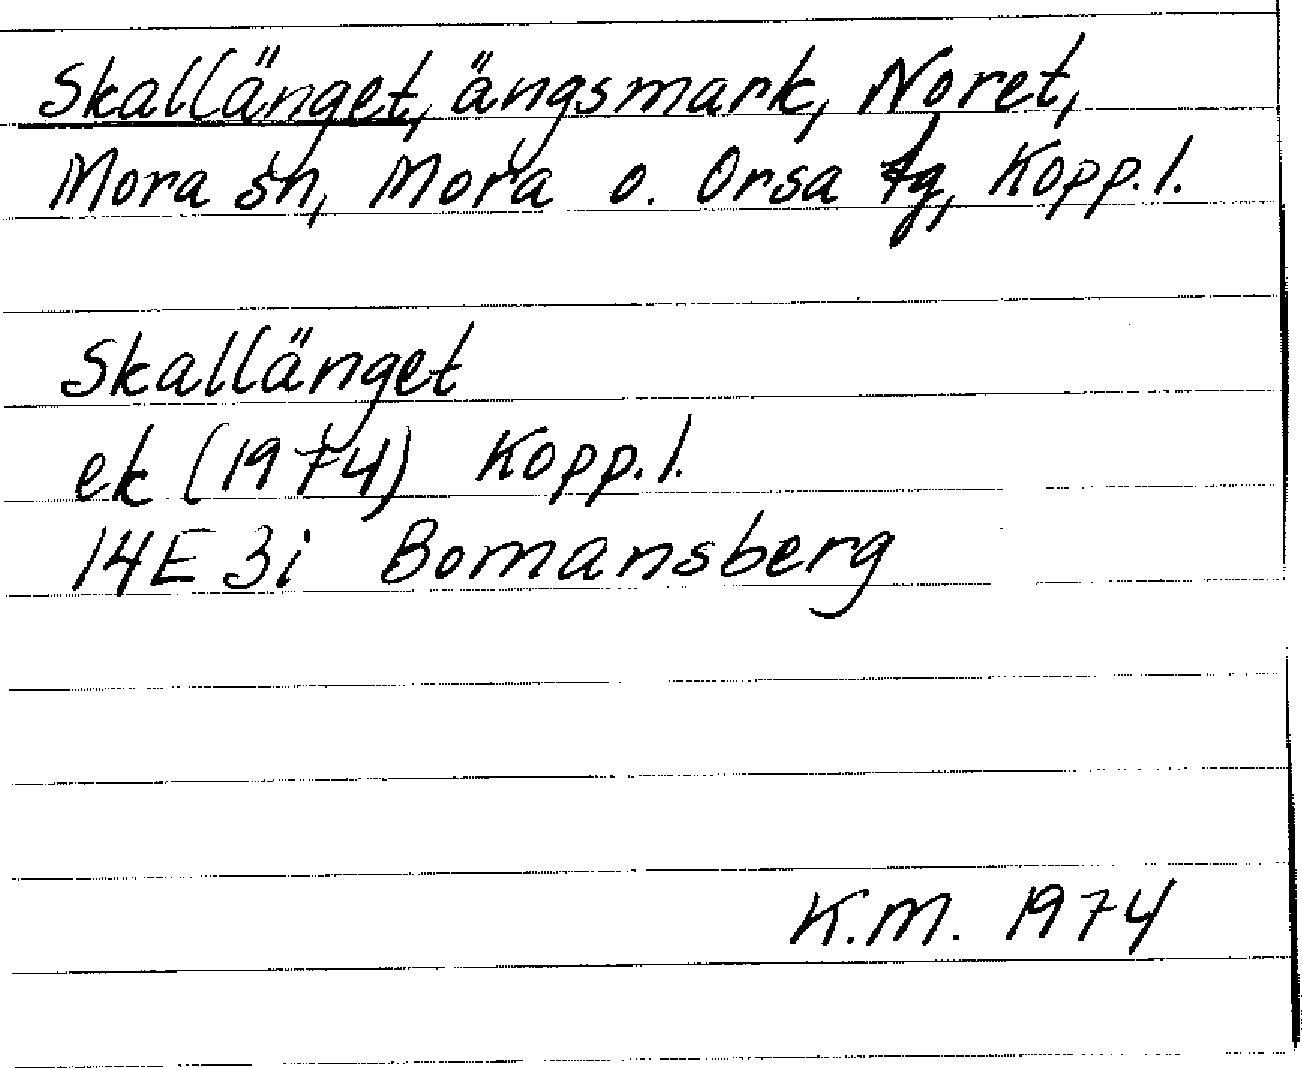 Skallänget, ängsmark, Noret,
Mora sn, Mora o. Orsa tg, Kopp.l.
Skallänget
ek (1974) Kopp.l.
14E 3i Bomansberg
K.M. 1974